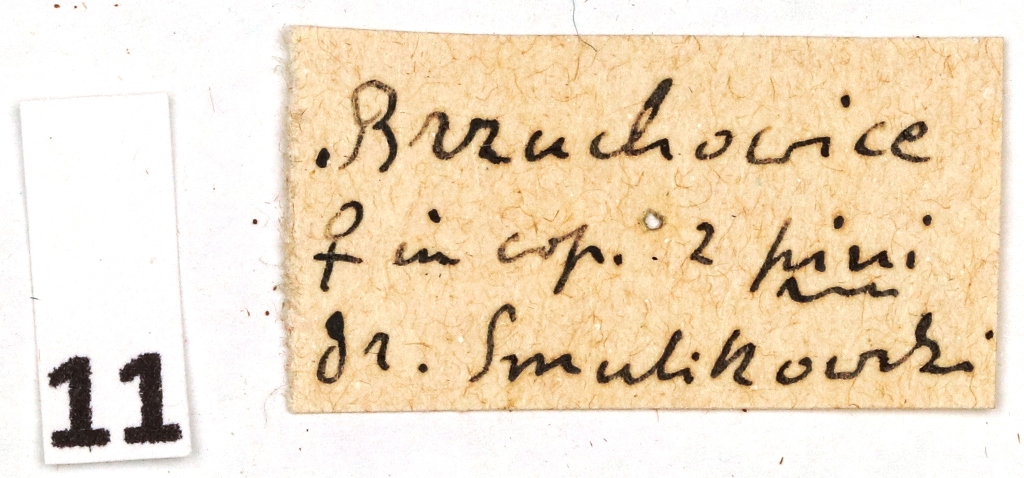 11
Brzuchowice
♀ in cop. z pini
dr. Smulikowski